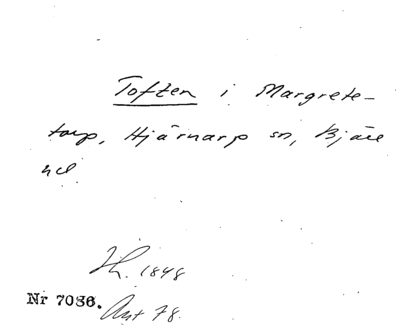 Toften i Margrete-
torp, Hjärnarp sn, Bjäre
hd
Th. 1848
Nr 7086. Ant 78.